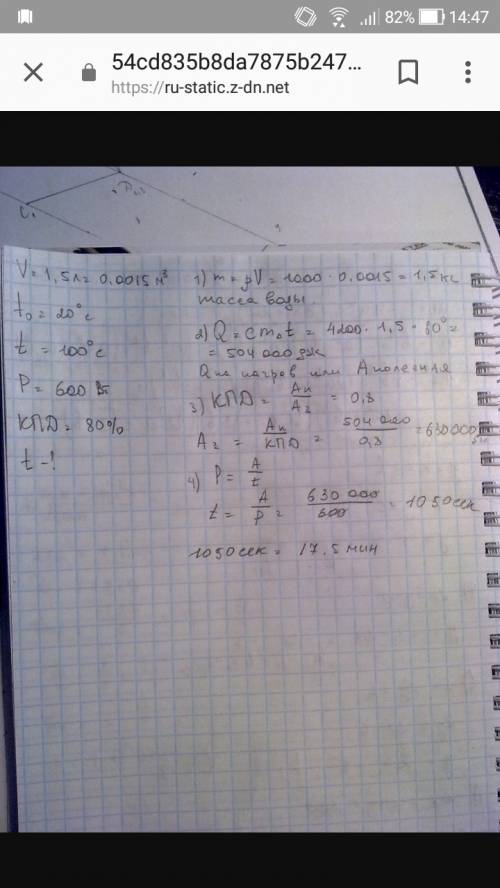 82% 14:47
54cd835b8da7875b247...
https://ru-static.z-dn.net
V = 1,5л = 0,0015 м³
t₀ = 20°c
t = 100°c
P = 600 Вт
КПД = 80%
t - ?
1) m = ρV = 1000 · 0,0015 = 1,5 кг
масса воды.
2) Q = cm△t = 4200 · 1,5 · 80° =
= 504 000 дж
Q на нагрев или A полезная
3) КПД = Aп/Aз = 0,8
Aз = Aп/КПД = 504 000/0,8 = 630000
4) P = A/t
t = A/P = 630 000/600 = 1050 сек
1050 сек = 17,5 мин